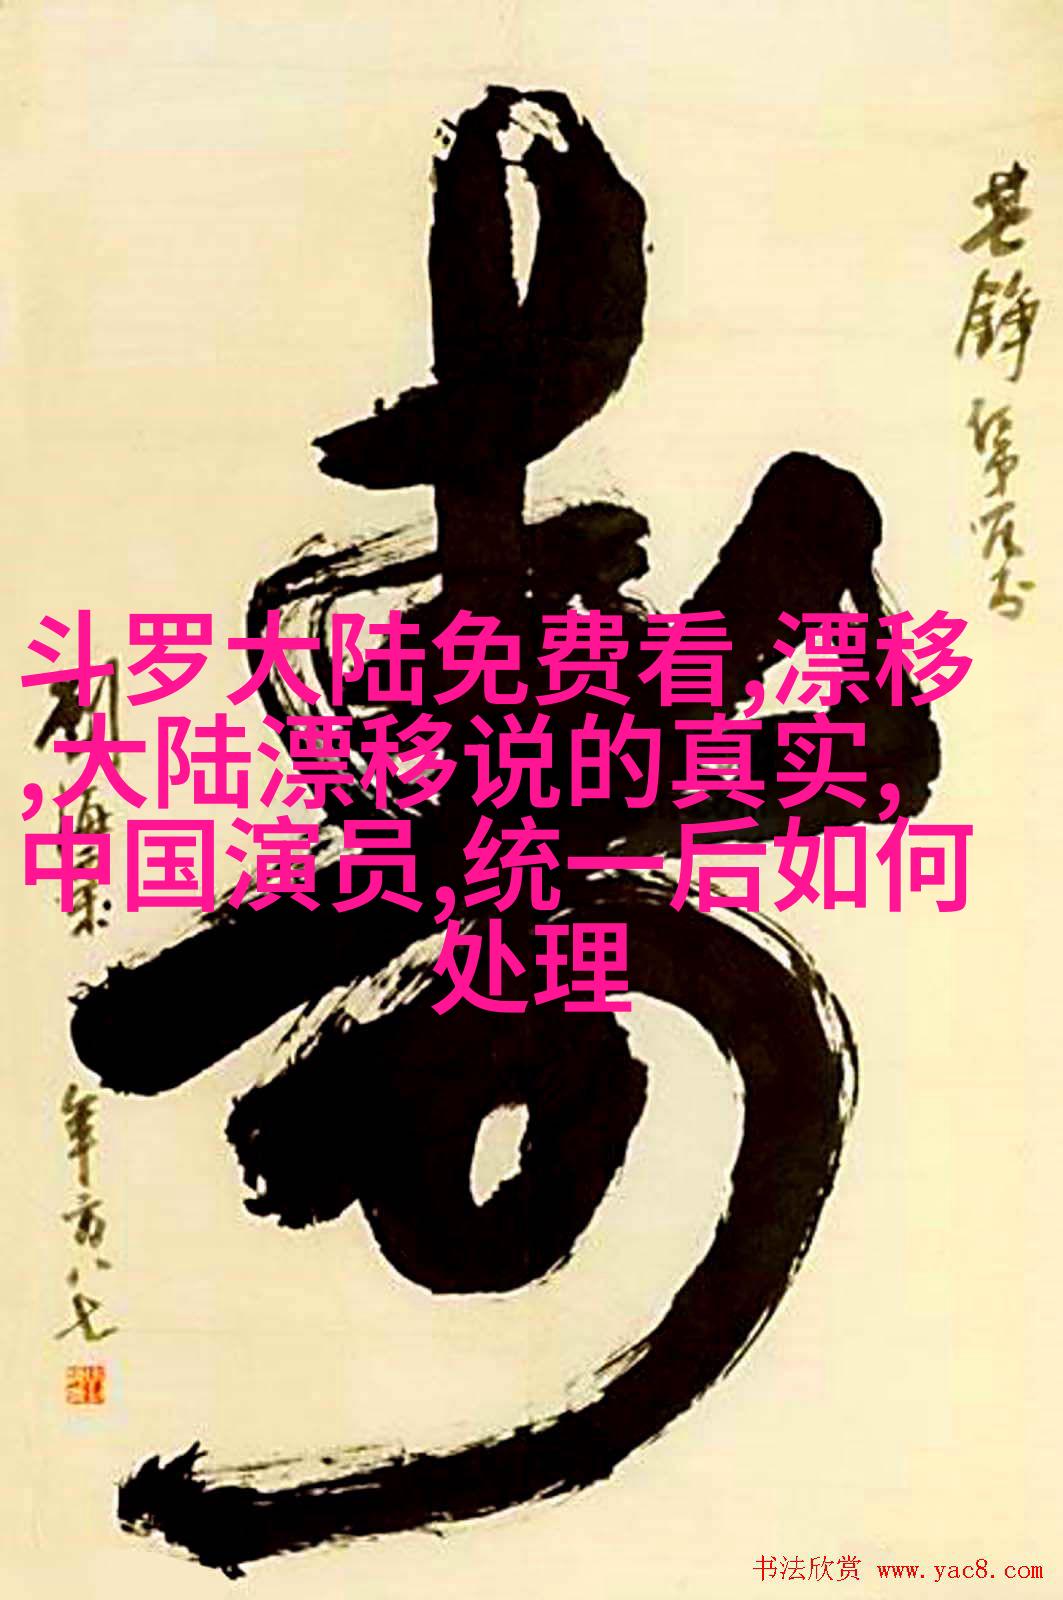 寿
其铮
年方八七
斗罗大陆免费看,漂移
,大陆漂移说的真实,
中国演员,统一后如何
处理
书法欣赏 www.yac8.com